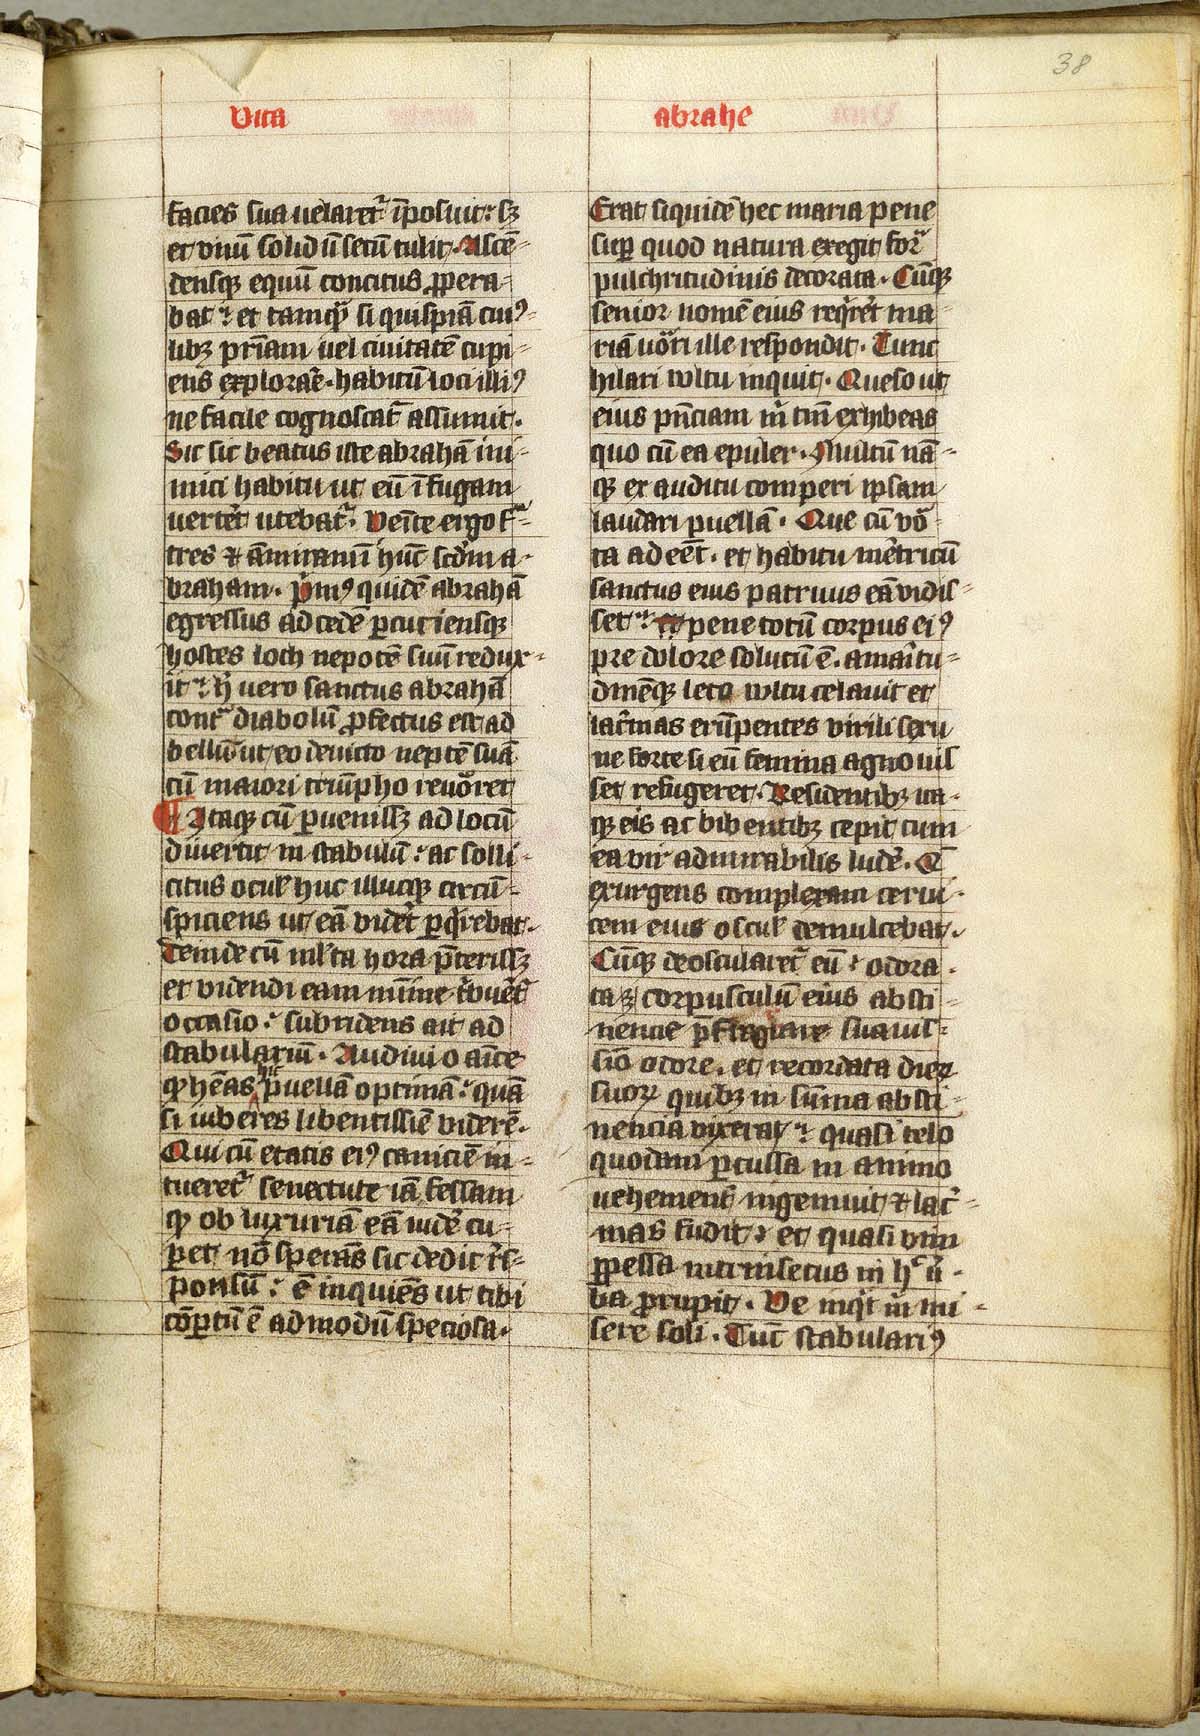 38
Vita abrahe
facies sua uelaret᷑ īposuit · sꝫ
et vnū solidū secū tulit · Ascē-
densqꝫ equū concitus ꝓpera-
bat · et tamqͣ si quispiā cuiꝰ-
libꝫ pr̄iam uel ciuitatē cupi-
ens explorar̄e · habitū loci illiꝰ
ne facile cognoscat᷑ assumit ·
Sic sic beatus iste abrahā ini-
mici habitu ut eū ī fugam
uertet᷑ utebat᷑ · Venīte ergo fͣ-
tres ⁊ āmiramī hūc scd̄m a-
braham · pͥmꝰ quidē abrahā
egressus ad cedē ꝑcuciensqꝫ
hostes loth nepotē suū redux-
it · hͥ uero sanctus abrahā
contͣ diabolū ꝓfectus est ad
bellū ut eo deuicto neptē suā
cū maiori triūpho reuoͨret
¶ Itaqꝫ cū ꝑuenissꝫ ad locū
diuertit in stabulū · ac solli-
citus ocul̄ huc illucqꝫ circū-
spiciens ut eā videt᷑ ꝑqͥrebat ·
Deinde cū ml̄ta hora p̄terissꝫ
et videndi eam minīme ꝓueīt᷑
occasio · subridens ait ad
stabulariū · Audiui o aīce
qͩ hēas hic puellā optimā · quā
si iuberes libentissīe viderē ·
Qui cū etatis eiꝰ caniciē in-
tueret᷑ senectute iā fessam
qͩ ob luxuriā eā uidē cu-
ꝑet nō sperās sic dedit rn̄s-
ponsū · ē inquiēs ut tibi
cōꝑtū ē admodū speciosa ·
Erat siquidē hec maria pene
suꝑ quod natura exegit forͣ
pulchritudinis decorata · Cūqꝫ
senior nomē eius reqͥret᷑ ma-
riā uoͨri ille respondit · Tunc
hilari wltu inquit · Queso ut
eius pn̄ciam m̄ tm̄ exhibeas
quo cū ea epuler · Multū nā-
qꝫ ex auditu comperi ipsam
laudari puellā · Que cū voͨ-
ta adeēt · et habitu mer̄tricū
sanctus eius patruus eā vidis-
set · pene totū corpus eiꝰ
pre dolore solutū ē · amaritu-
dinēqꝫ leto wltu celauit et
lacͥmas erūpentes virili sexu
ne forte si eū femina agnouis
set refugeret · Residentibꝫ ita-
qꝫ eis ac bibentibꝫ cepit cum
ea vir admirabilis luder̄ · Q̄
exurgens complexam cerui-
cem eius oscul̄ demulcebat ·
Cūqꝫ deoscularet᷑ eū · odora-
ta ꝫ corpusculū eius absti-
nencie p̄flagrare suauis-
sīo odore · et recordata dieꝝ
suoꝝ quibꝫ in sūma absti-
nencia vixerat · quasi telo
quodam ꝑcussa in animo
uehement᷑ ingemuit ⁊ lacͥ-
mas fudit · et quasi vim
ꝑpessa intrinsecus in hͨ ū-
ba ꝓrupit · Ve inqͥt m̄ mi-
sere soli · Tūc stabulariꝰ